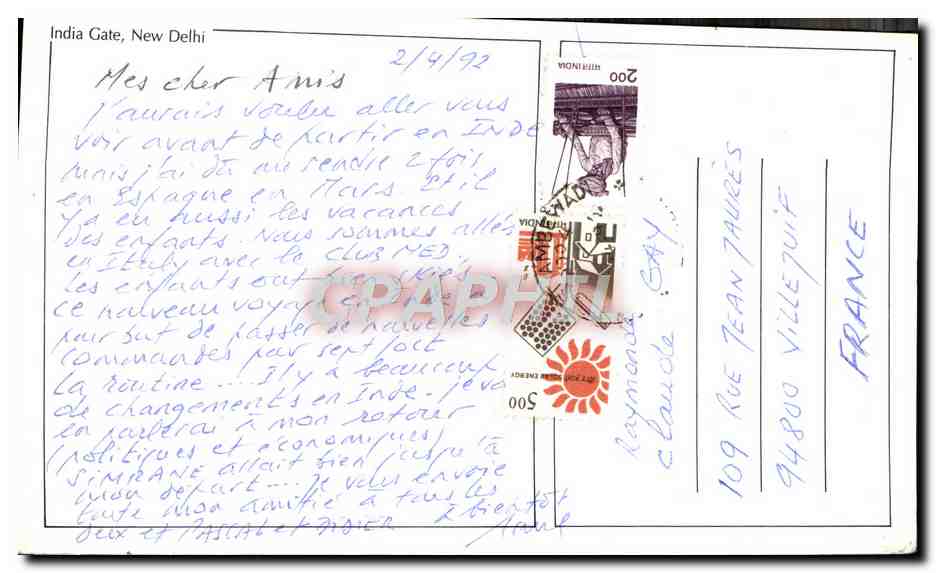 India Gate, New Delhi
2/4/92
Mes cher Amis
J'aurais voulu aller vous
voir avant de partir en INDE
mais j'ai dû me rendre 2 fois
en Espagne en Mars. Et il
y a eu aussi les vacances
des enfants. Nous sommes allés
en Italy avec le CLUB MED.
Les enfants ont bien skiés
ce nouveau voyage en Inde a
pour but de passer de nouvelles
commandes pour sept oct
La routine.... Il y a beaucoup
de changements en Inde. je vous
en parlerai à mon retour
(politiques et économiques)
SIMRANE allait bien jusqu'à
mon départ.... Je vous envoie
toute mon amitié à tous les
deux et PASCAL et DIDIER
à bientôt
Anne
CPAPHIL
2.00
भारत INDIA
भारत INDIA
SOLAR ENERGY
5.00
AMBEWADI
Raymonde GAY...
Claude
109 RUE JEAN JAURÈS
94800 VILLEJUIF
FRANCE